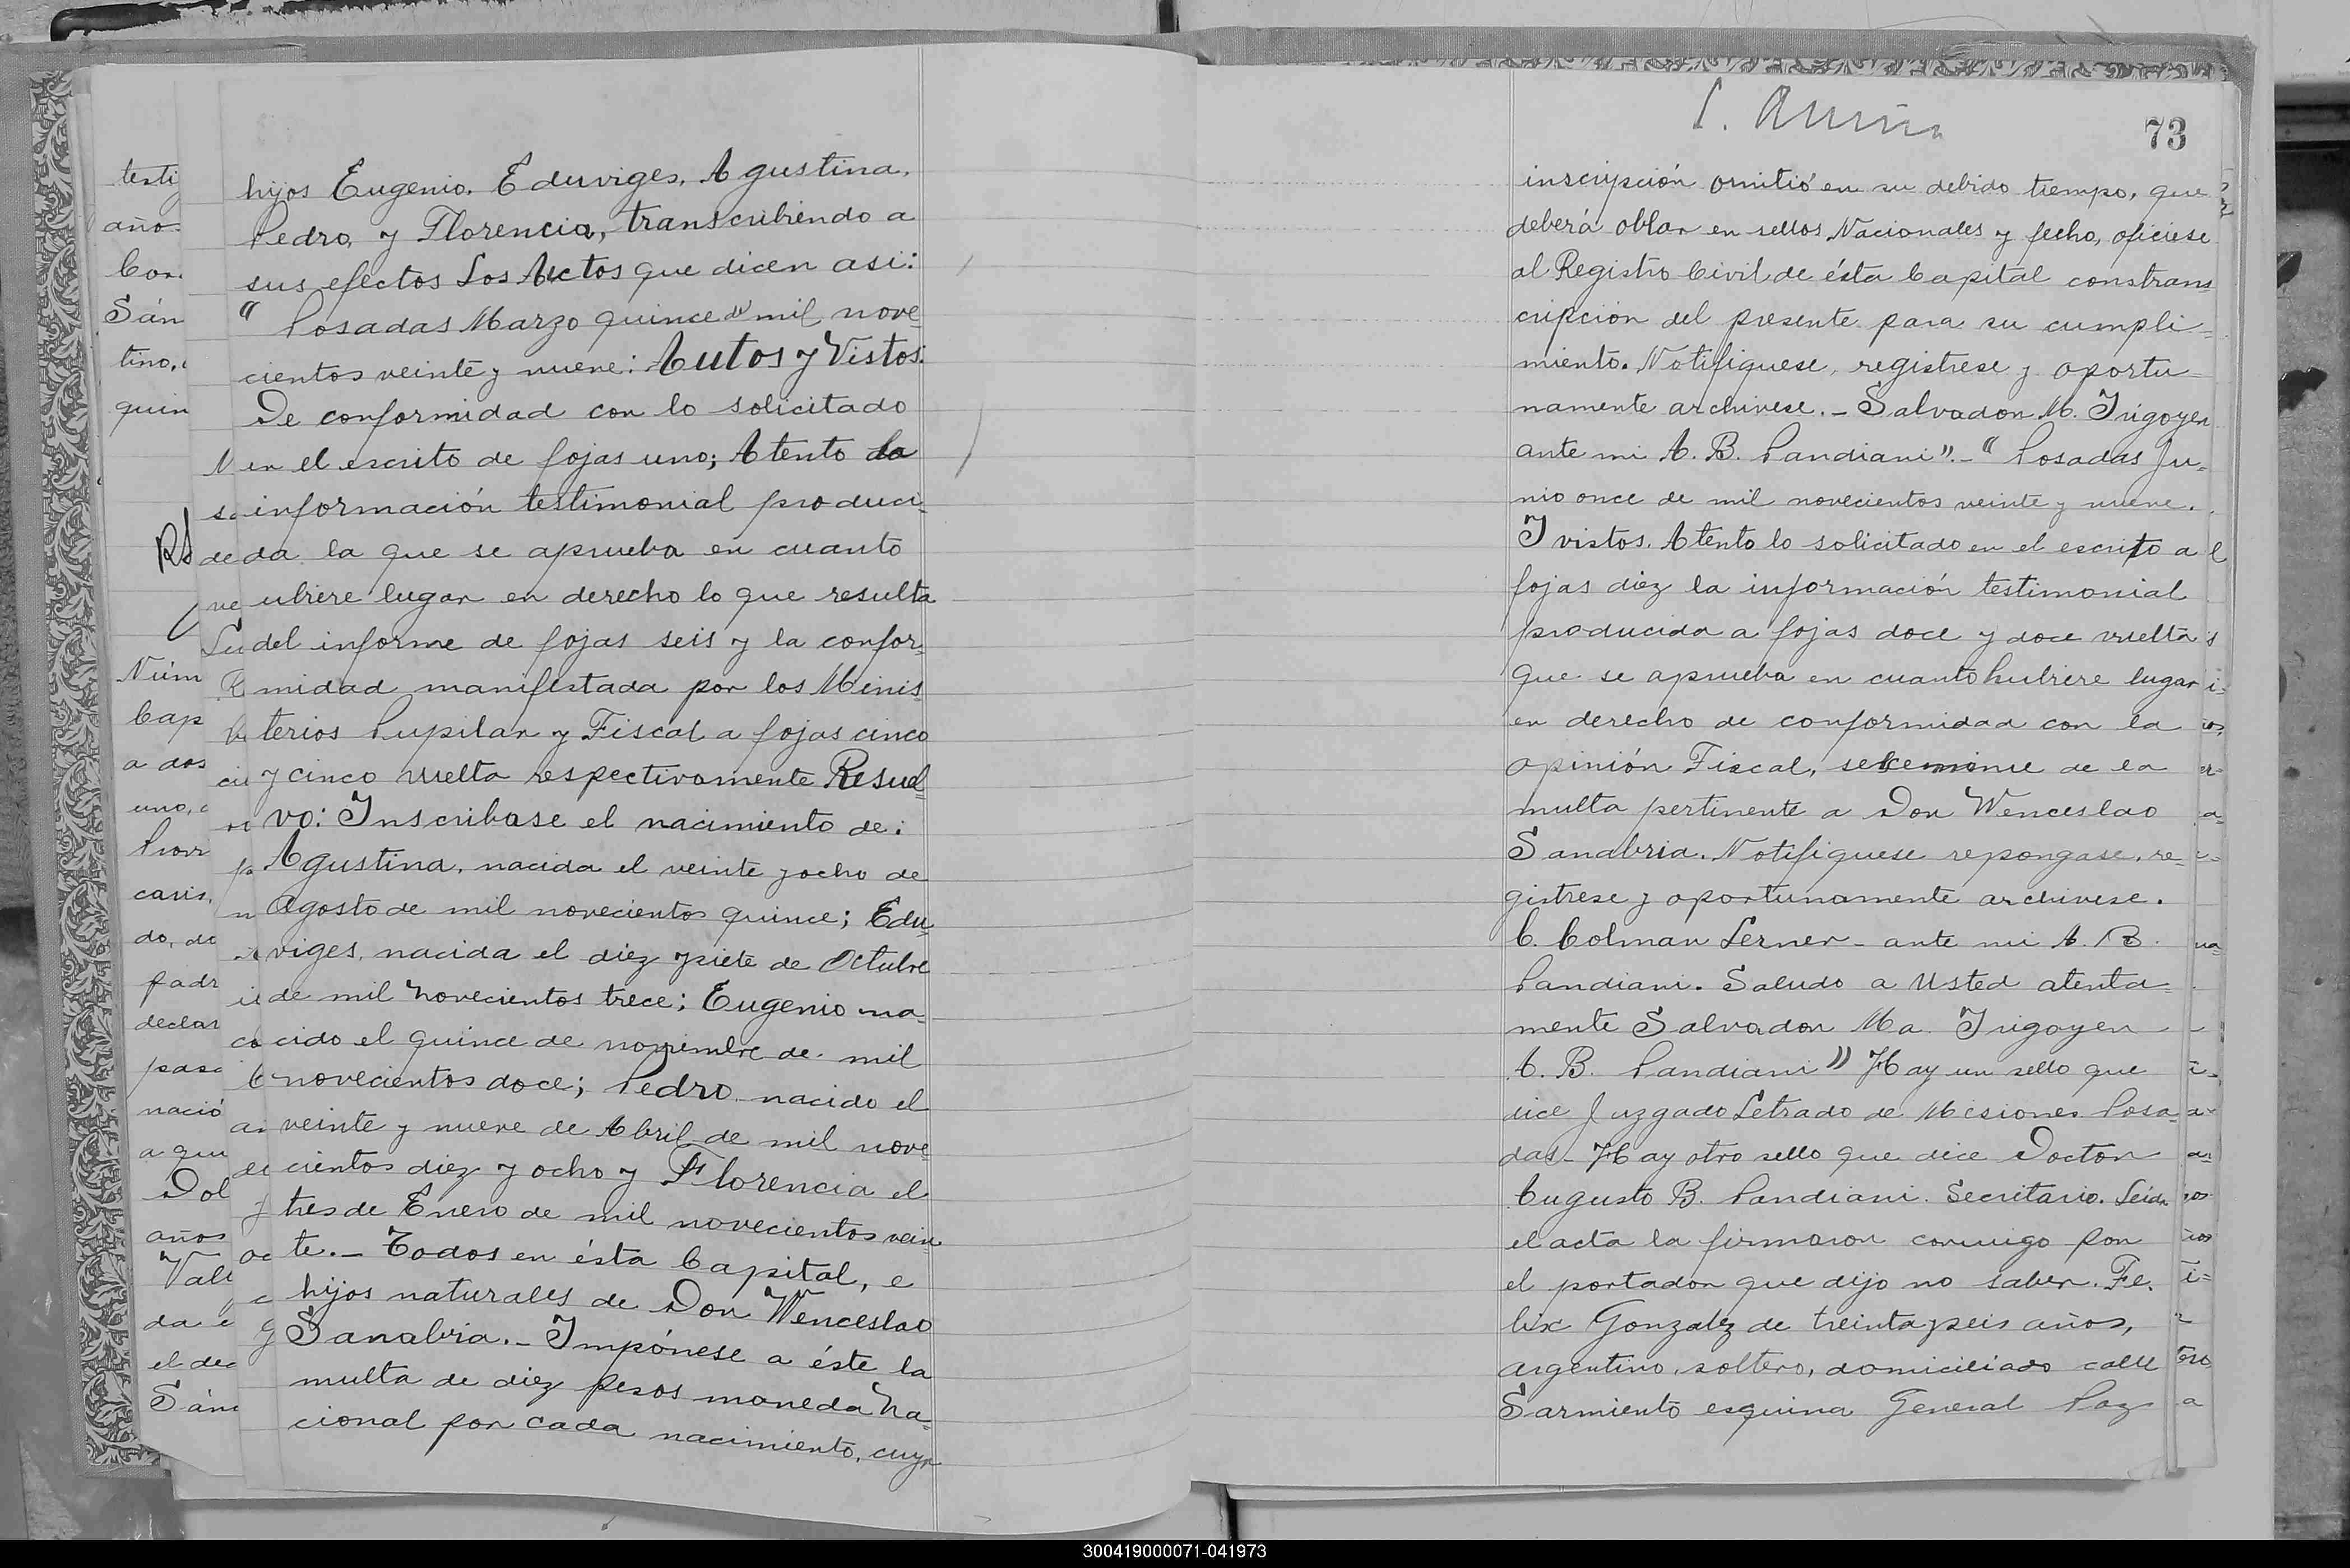 hijos Eugenio, Eduviges, Agustina,
Pedro, y Florencia, transcribiendo a
sus efectos Los Auctos que dicen asi:
" Posadas Marzo quince de mil nove-
cientos veinte y nueve: Autos y Vistos:
De conformidad con lo solicitado
en el escrito de fojas uno; Atento la
información testimonial produci-
da la que se aprueba en cuanto
ubiere lugar en derecho lo que resulta
del informe de fojas seis y la confor-
midad manifestada por los Minis
terios Pupilar y Fiscal a fojas cinco
y cinco vuelta respectivamente Resuel-
vo: Inscribase el nacimiento de:
Agustina, nacida el veinte y ocho de
Agosto de mil novecientos quince; Edu-
viges, nacida el diez y siete de Octubre
de mil novecientos trece; Eugenio na-
cido el quince de noviembre de mil
novecientos doce; Pedro nacido el
veinte y nueve de Abril de mil nove-
cientos diez y ocho y Florencia el
tres de Enero de mil novecientos vein
te.- Todos en ésta Capital, e
hijos naturales de Don Wenceslao
Sanabria.- Impónese a éste la
multa de diez pesos moneda Na-
cional por cada nacimiento, cuya
73
inscripción omitió en su debido tiempo, que
deberá oblar en sellos Nacionales y fecho, oficiese
al Registro Civil de ésta Capital constrans
cripción del presente para su cumpli-
miento. Notifiquese, registrese y oportu-
namente archivese.- Salvador M. Irigoyen
ante mi A. B. Pandiani".- " Posadas Ju-
nio once de mil novecientos veinte y nueve.
I vistos. Atento lo solicitado en el escrito a
fojas diez la información testimonial
producida a fojas doce y doce vuelta
que se aprueba en cuanto hubiere lugar
en derecho de conformidad con la
opinión Fiscal, se de la
multa pertinente a Don Wenceslao
Sanabria. Notifiquese repongase, re-
gistrese y oportunamente archivese.
C. Colman Lerner - ante mi A. B.
Pandiani. Saludo a Usted atenta-
mente Salvador Ma. Irigoyen
A. B. Pandiani" Hay un sello que
dice Juzgado Letrado de Misiones Posa-
das- Hay otro sello que dice Doctor
Augusto B. Pandiani. Secretario. Leida
el acta la firmaron conmigo por
el portador que dijo no saber. Fe.
lix Gonzalez de treinta y seis años,
argentino, soltero, domiciliado calle
Sarmiento esquina General Paz
300419000071-041973